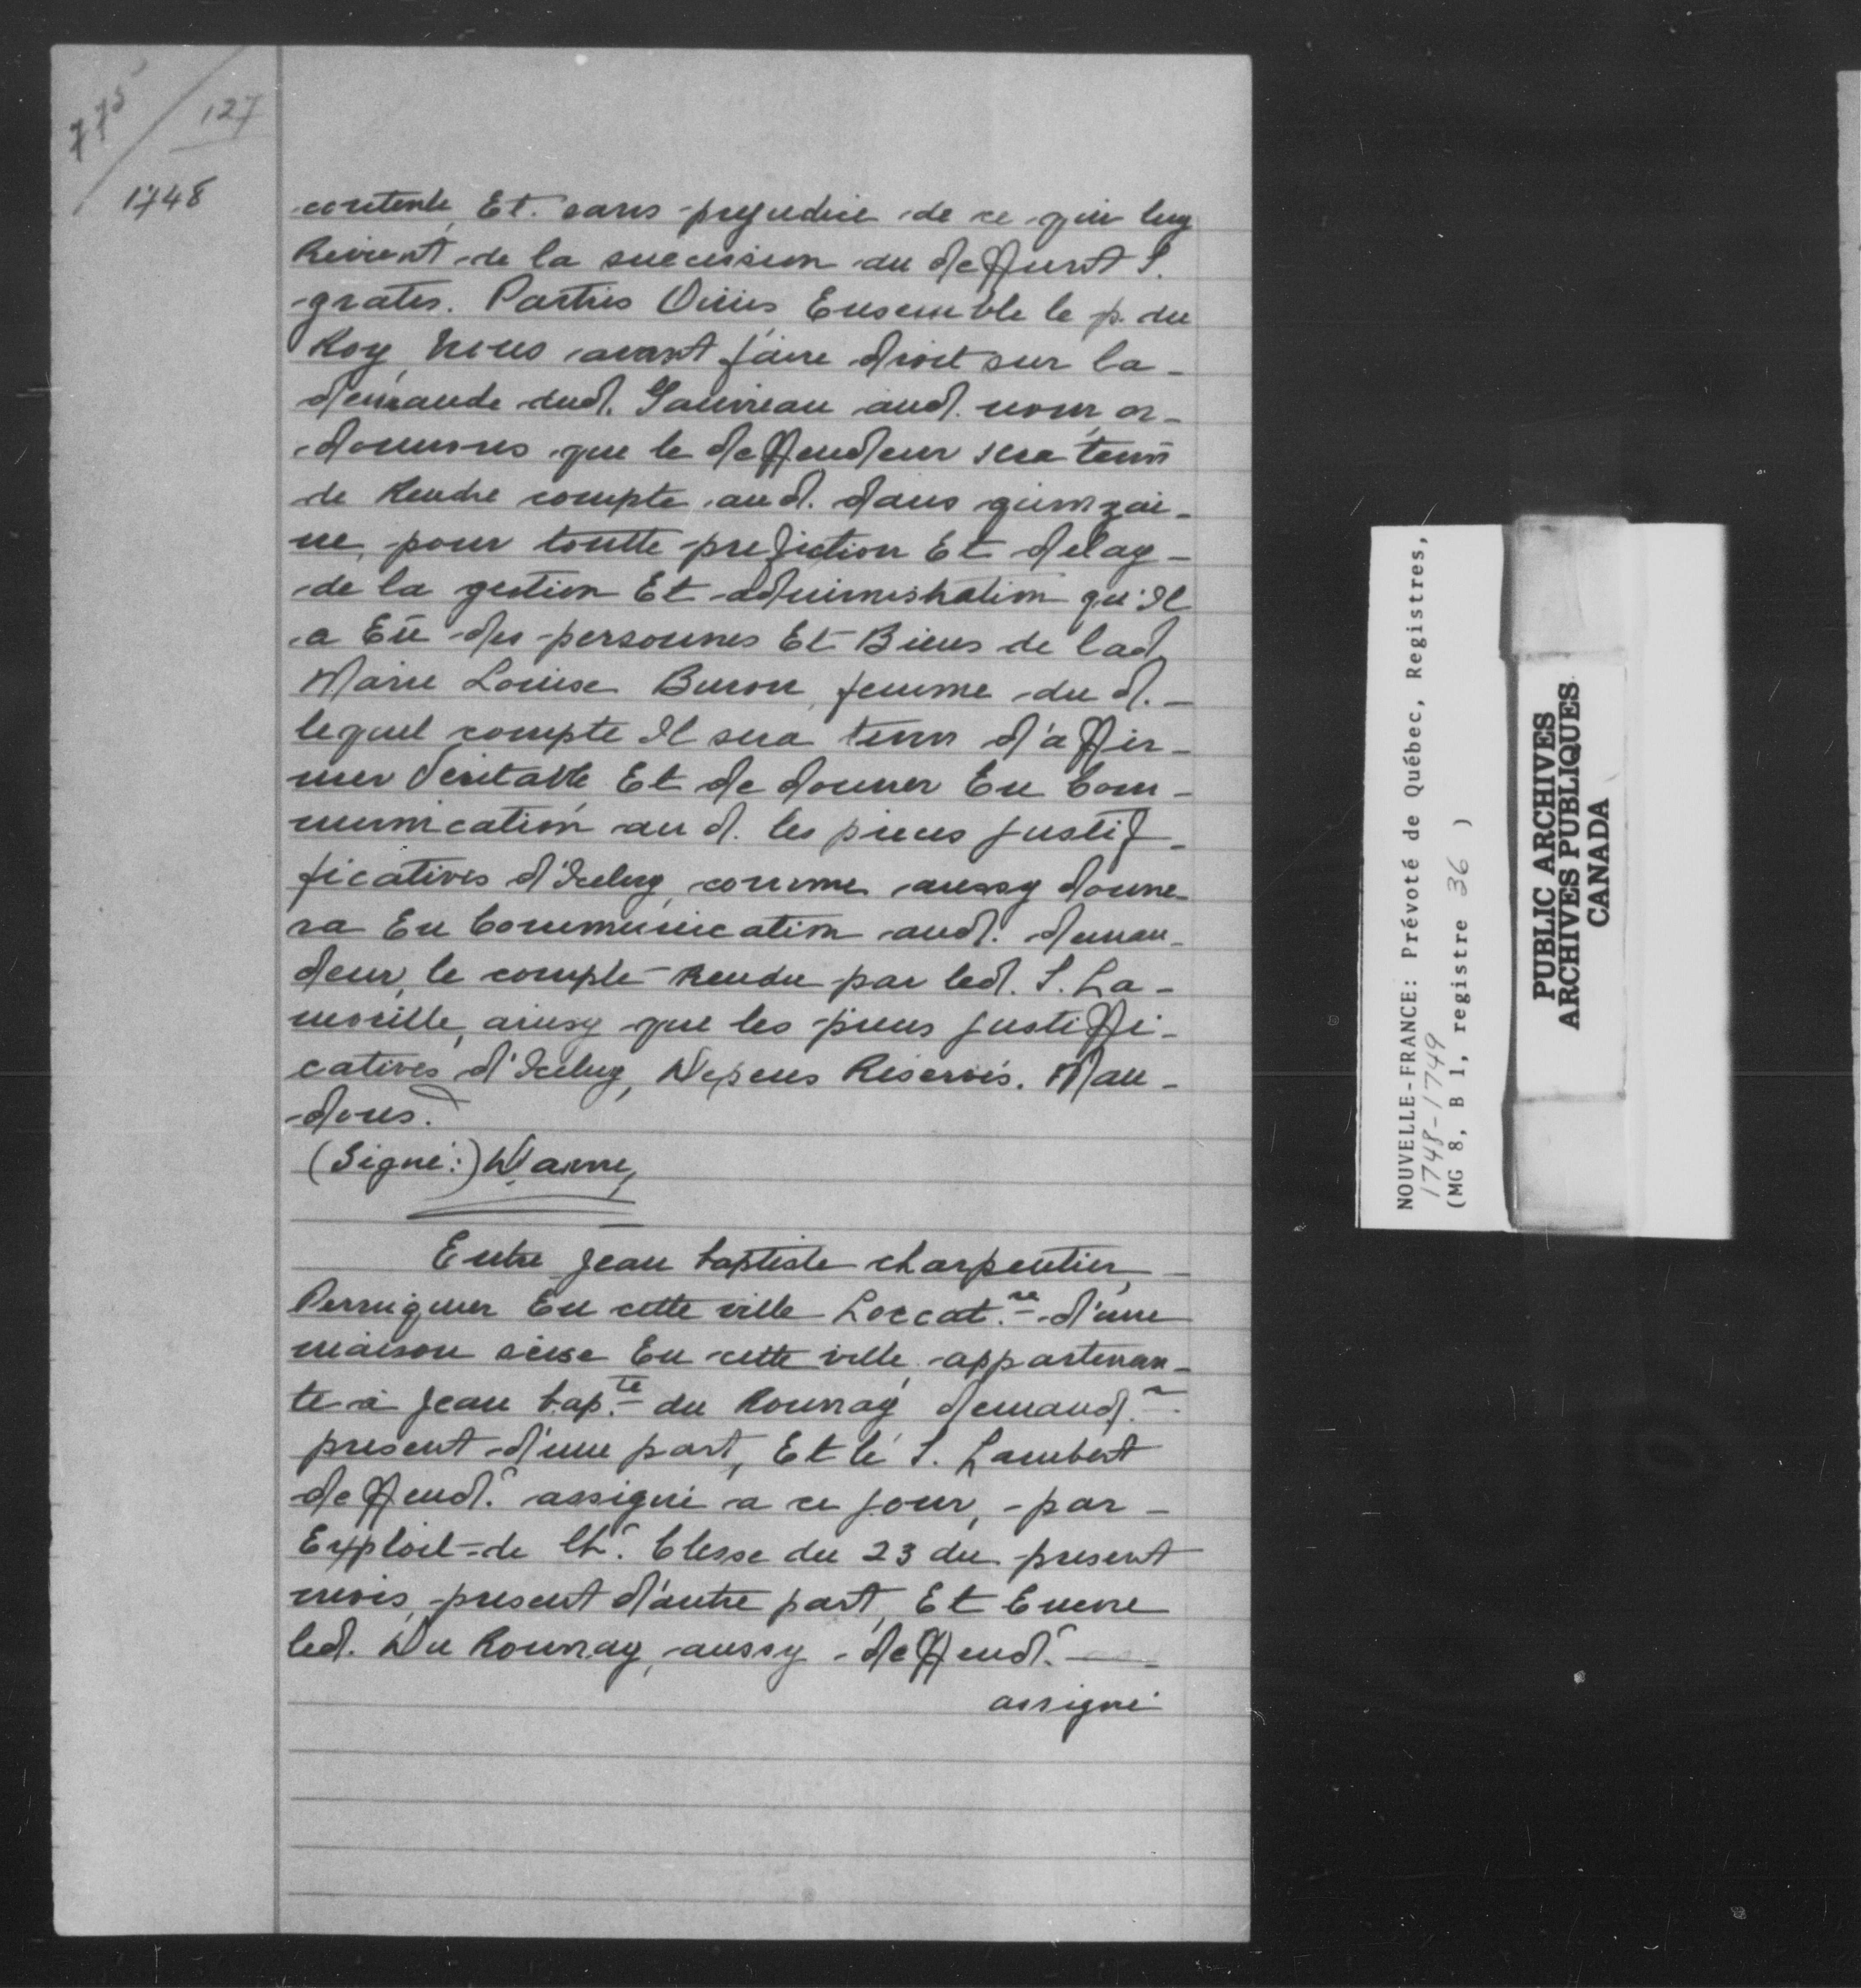 775
127
1748
contente, Et. sans prejudice de ce qui luy
Revient de la succession du deffunt S.
grates. Parties Ouïes Ensemble le p. du
Roy, Nous avant faire droit sur la -
demande dud. Gauvreau aud. nom, or -
donnons que le deffendeur sera tenû
de Rendre compte aud. dans quinzai -
ne, pour toutte prefiction Et delay -
de la gestion Et administration qu'Il
a Eû des personnes Et Biens de lad.
Marie Louise Buron, femme du d. -
lequel compte Il sera tenu d'affir -
mer Veritable Et de donner En Com -
munication au d. les pieces justif -
ficatives d'Iceluy, comme aussy donne -
ra En Communication aud. deman -
deur, le compte Rendu par led. S. La -
morille, ainsy que les pieces justiffi -
catives d'Iceluy, Depens Réservés. Man -
dons.
(Signé:) Daine,
Entre Jean baptiste charpentier, -
Perruquier En cette ville Loccat.re d'une
maison scise En cette ville, appartenan -
te à Jean bap.te du Rouvray demand.r
present d'une part, Et le S. Lambert
deffend.r assigné a ce jour, par -
Exploit de Ch.r Clesse du 23 du present
mois, present d'autre part, Et Encore
led. Du Rouvray, aussy deffend.r
assigné
NOUVELLE-FRANCE: Prévoté de Québec, Registres,
1748-1749
(MG 8, B 1, registre 36 )
PUBLIC ARCHIVES
ARCHIVES PUBLIQUES
CANADA